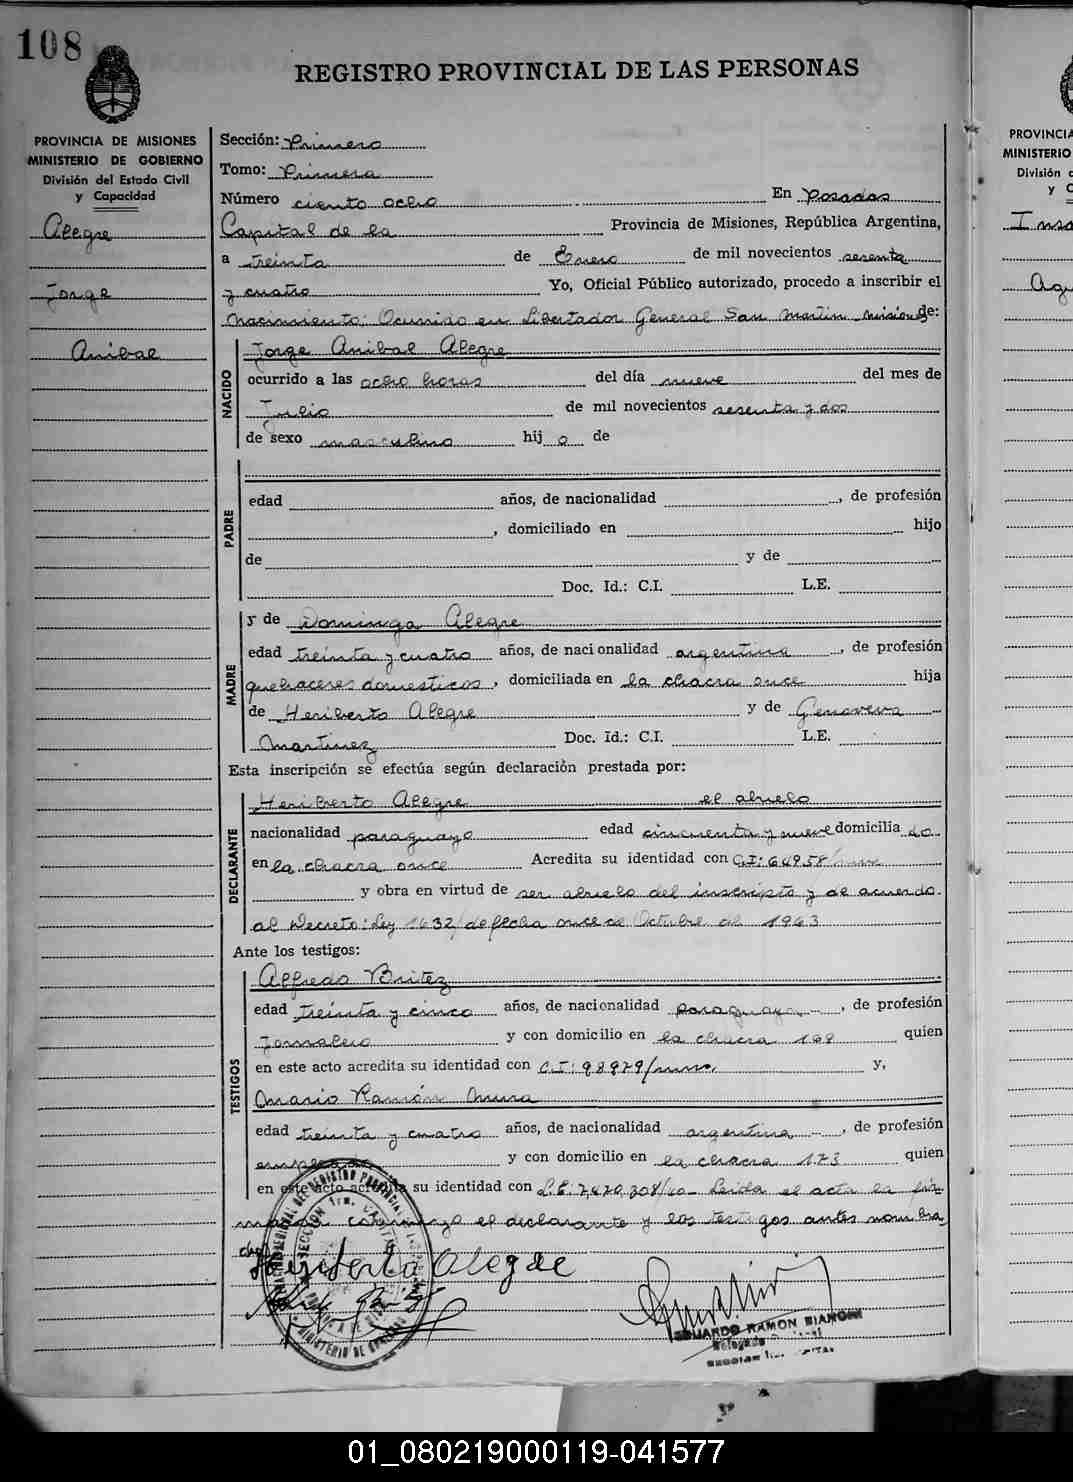 108
REGISTRO PROVINCIAL DE LAS PERSONAS
PROVINCIA DE MISIONES
MINISTERIO DE GOBIERNO
División del Estado Civil
y Capacidad
Alegre
Jorge
Anibal
Sección: Primero
Tomo: Primera
Número ciento ocho En Posadas
Capital de la Provincia de Misiones, República Argentina,
a treinta de Enero de mil novecientos sesenta
y cuatro Yo, Oficial Público autorizado, procedo a inscribir el
nacimiento: Ocurrido en Libertador General San Martin Misiones de:
NACIDO
Jorge Anibal Alegre
ocurrido a las ocho horas del día nueve del mes de
Julio de mil novecientos sesenta y dos
de sexo masculino hij o de
PADRE
edad años, de nacionalidad , de profesión
, domiciliado en hijo
de y de
Doc. Id.: C.I. L.E.
MADRE
y de Dominga Alegre
edad treinta y cuatro años, de nacionalidad argentina , de profesión
quehaceres domesticos , domiciliada en la chacra once hija
de Heriberto Alegre y de Genoveva
Martinez Doc. Id.: C.I. L.E.
Esta inscripción se efectúa según declaración prestada por:
DECLARANTE
Heriberto Alegre el abuelo
nacionalidad paraguayo edad cincuenta y nueve domicilia do
en la chacra once Acredita su identidad con C.I: 64958/
y obra en virtud de ser abuelo del inscripto y de acuerdo
al Decreto: Ley 1632/ de fecha once de Octubre de 1963
Ante los testigos:
TESTIGOS
Alfredo Britez
edad treinta y cinco años, de nacionalidad paraguaya , de profesión
Jornalero y con domicilio en la chacra 188 quien
en este acto acredita su identidad con C.I: 98979/mnes. y,
Mario Ramón Mura
edad treinta y cuatro años, de nacionalidad argentina , de profesión
empleado y con domicilio en la chacra 173 quien
en este acto acredita su identidad con L.E. 7.470.308/ Leida el acta la fir-
man conmigo el declarante y los testigos antes nombra-
dos
Heriberto Alegre
EDUARDO RAMON BIANCHI
PROVINCIA
MINISTERIO
División d
y C
01_080219000119-041577